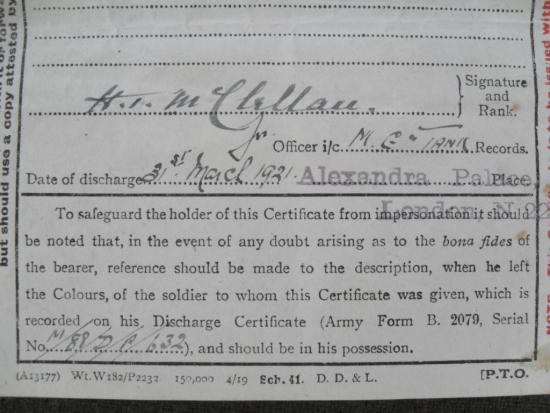 but should use a copy attested by
H.T. McClellan.
Signature and Rank.
Officer i/c M.G. "Tank Records.
Date of discharge 31st March 1921. Alexandra Palace Place
London N 22
To safeguard the holder of this Certificate from impersonation it should
be noted that, in the event of any doubt arising as to the bona fides of
the bearer, reference should be made to the description, when he left
the Colours, of the soldier to whom this Certificate was given, which is
recorded on his Discharge Certificate (Army Form B. 2079, Serial
No. M/88/D/C/632), and should be in his possession.
(A13177) Wt.W182/P2232 150,000 4/19 Sch.41. D. D. & L. [P.T.O.